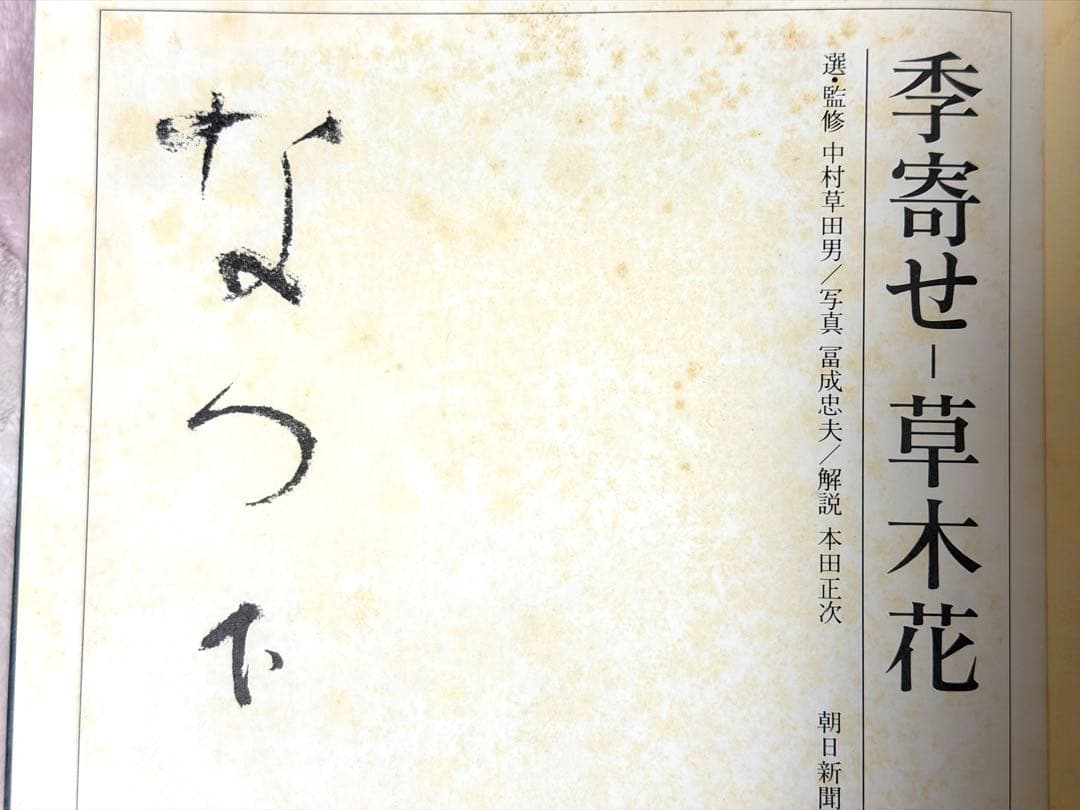 季寄せ-草木花
選・監修 中村草田男/写真 冨成忠夫/解説 本田正次
朝日新聞
なつ下